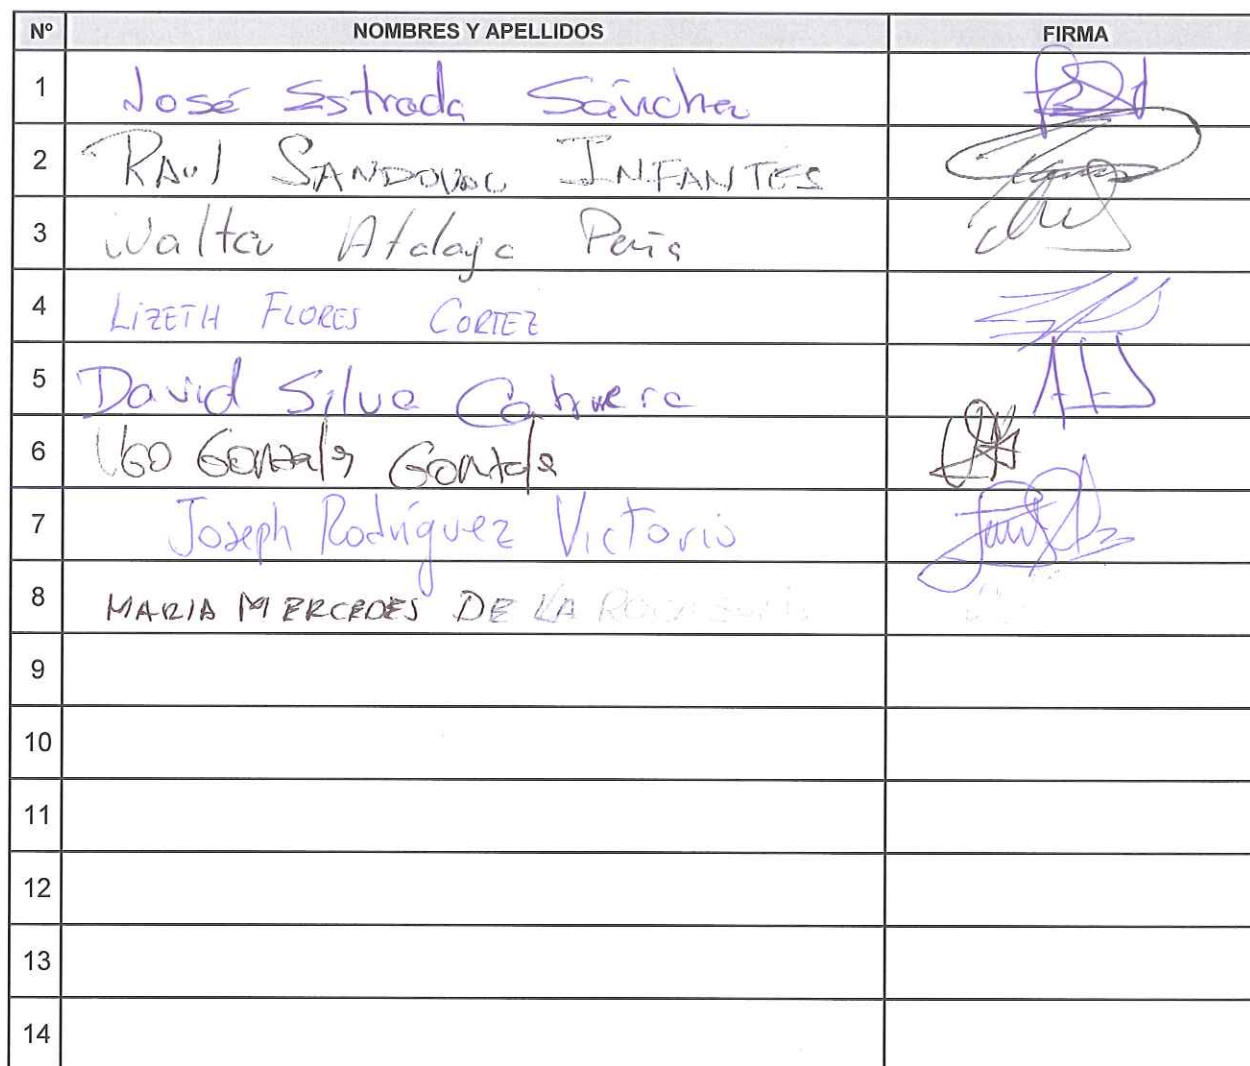 Nº NOMBRES Y APELLIDOS FIRMA
1 José Estrada Sánchez
2 RAUL SANDOVAL INFANTES
3 Walter Atalaya Peña
4 LIZETH FLORES CORTEZ
5 David Silva Cabrera
6 UGO Gonzales Gonzales
7 Joseph Rodríguez Victorio
8 MARIA MERCEDES DE LA
9
10
11
12
13
14